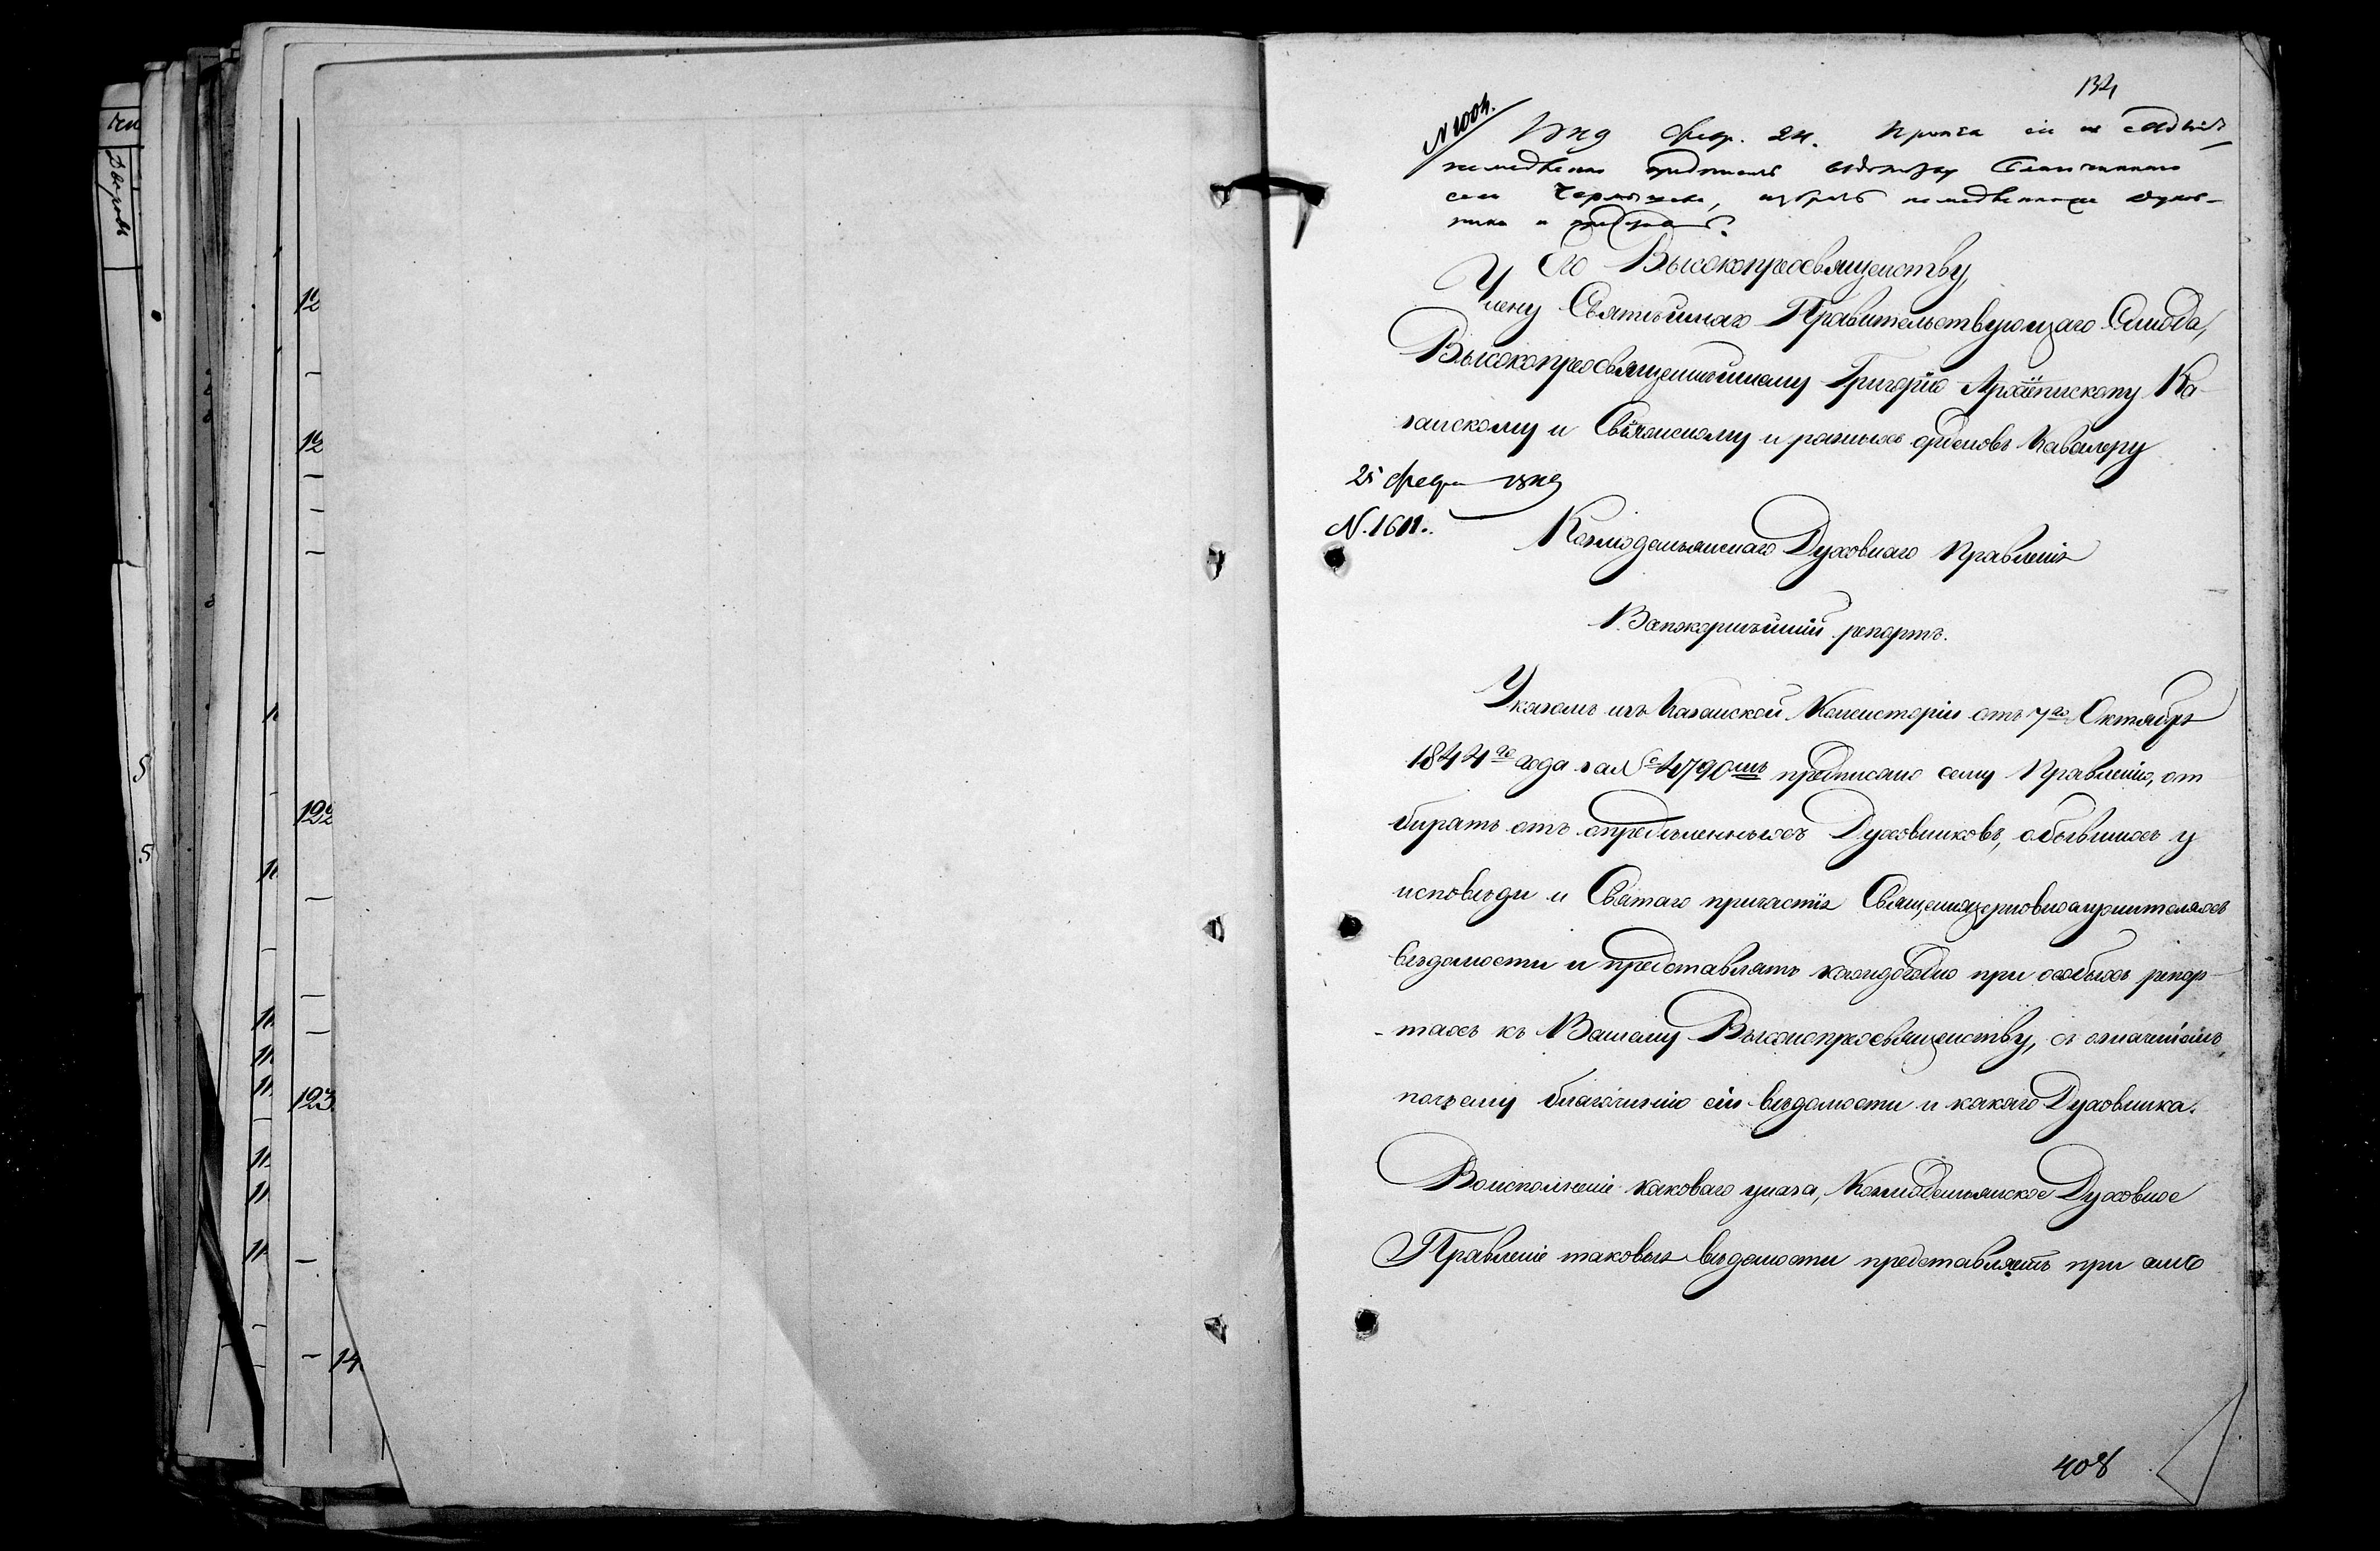 134
N 1004.
1849 Февр. 24. Принять сіи къ свѣдѣнію,
немедленно предписать
села Чермышева, избрать немедленно духов-
ника и
Его Высокопреосвященству,
Члену Святѣйшаго Правительствующаго Синода,
Высокопреосвященнѣйшему Григорію Архіепископу Ка-
занскому и Свіяжскому и разныхъ орденовъ Кавалеру
25 Февр 1849
N. 1611.
Козмодемьянскаго Духовнаго Правленія
Всепокорнѣйшій репортъ.
Указомъ изъ Казанской Консисторіи отъ 7го Октября
1844го года за № 4790мъ предписано сему Правленію, от
бирать отъ опредѣленныхъ Духовниковъ, о бывшихъ у
исповѣди и Святаго причастія Священноцерковнослужителяхъ
вѣдомости и представлять каждогодно при особыхъ репор-
-тахъ къ Вашему Высокопреосвященству, съ означеніемъ
по чьему благочинію сіи вѣдомости и какого Духовника.
Воисполненіе каковаго указа, Козмодемьянское Духовное
Правленіе таковыя вѣдомости представляетъ при семъ
408
12
12
122
123
14
5
5
Дворовъ